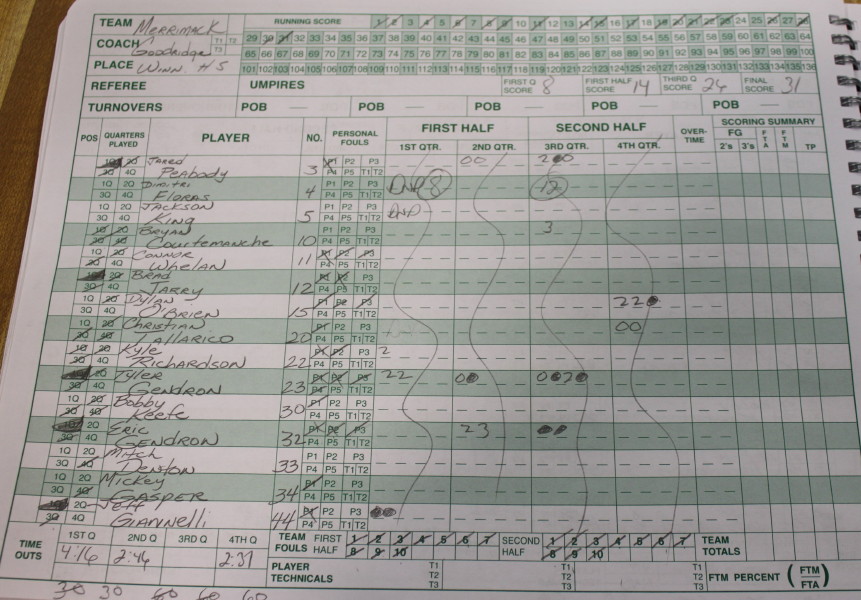 TEAM Merrimack
RUNNING SCORE 1 2 3 4 5 6 7 8 9 10 11 12 13 14 15 16 17 18 19 20 21 22 23 24 25 26 27 28
COACH Goodridge T1 T2 T3
29 30 31 32 33 34 35 36 37 38 39 40 41 42 43 44 45 46 47 48 49 50 51 52 53 54 55 56 57 58 59 60 61 62 63 64
65 66 67 68 69 70 71 72 73 74 75 76 77 78 79 80 81 82 83 84 85 86 87 88 89 90 91 92 93 94 95 96 97 98 99 100
PLACE Winn. HS
101 102 103 104 105 106 107 108 109 110 111 112 113 114 115 116 117 118 119 120 121 122 123 124 125 126 127 128 129 130 131 132 133 134 135 136
REFEREE UMPIRES FIRST Q SCORE 8 FIRST HALF SCORE 14 THIRD Q SCORE 26 FINAL SCORE 31
TURNOVERS POB — POB — POB — POB — POB —
POS QUARTERS PLAYED PLAYER NO. PERSONAL FOULS FIRST HALF SECOND HALF OVER-TIME SCORING SUMMARY
1ST QTR. 2ND QTR. 3RD QTR. 4TH QTR. FG 2's 3's FTA FTM TP
1Q 2Q Jared P1 P2 P3 00 200
3Q 4Q Peabody 3 P4 P5 T1 T2
1Q 2Q Dimitri P1 P2 P3 DNP 8 12
3Q 4Q Floras 4 P4 P5 T1 T2
1Q 2Q Jackson P1 P2 P3 DNP
3Q 4Q King 5 P4 P5 T1 T2
1Q 2Q Bryan P1 P2 P3 3
3Q 4Q Courtemanche 10 P4 P5 T1 T2
1Q 2Q Connor P1 P2 P3
3Q 4Q Whelan 11 P4 P5 T1 T2
1Q 2Q Brad P1 P2 P3
3Q 4Q Jarry 12 P4 P5 T1 T2
1Q 2Q Dylan P1 P2 P3 220
3Q 4Q O'Brien 15 P4 P5 T1 T2
1Q 2Q Christian P1 P2 P3 00
3Q 4Q Tallarico 20 P4 P5 T1 T2
1Q 2Q Kyle P1 P2 P3 2
3Q 4Q Richardson 22 P4 P5 T1 T2
1Q 2Q Tyler P1 P2 P3 22 00 0020
3Q 4Q Gendron 23 P4 P5 T1 T2
1Q 2Q Bobby P1 P2 P3
3Q 4Q Keefe 30 P4 P5 T1 T2
1Q 2Q Eric P1 P2 P3 23 00
3Q 4Q Gendron 32 P4 P5 T1 T2
1Q 2Q Mitch P1 P2 P3
3Q 4Q Denton 33 P4 P5 T1 T2
1Q 2Q Mickey P1 P2 P3
3Q 4Q Gasper 34 P4 P5 T1 T2
1Q 2Q Jeff P1 P2 P3 00
3Q 4Q Giannelli 44 P4 P5 T1 T2
TIME OUTS 1ST Q 2ND Q 3RD Q 4TH Q TEAM FOULS FIRST HALF 1 2 3 4 5 6 7 8 9 10 SECOND HALF 1 2 3 4 5 6 7 8 9 10 TEAM TOTALS
4:16 2:46 2:37
PLAYER TECHNICALS T1 T2 T3 T1 T2 T3 T1 T2 T3 FTM PERCENT (FTM/FTA)
30 30 60 60 60